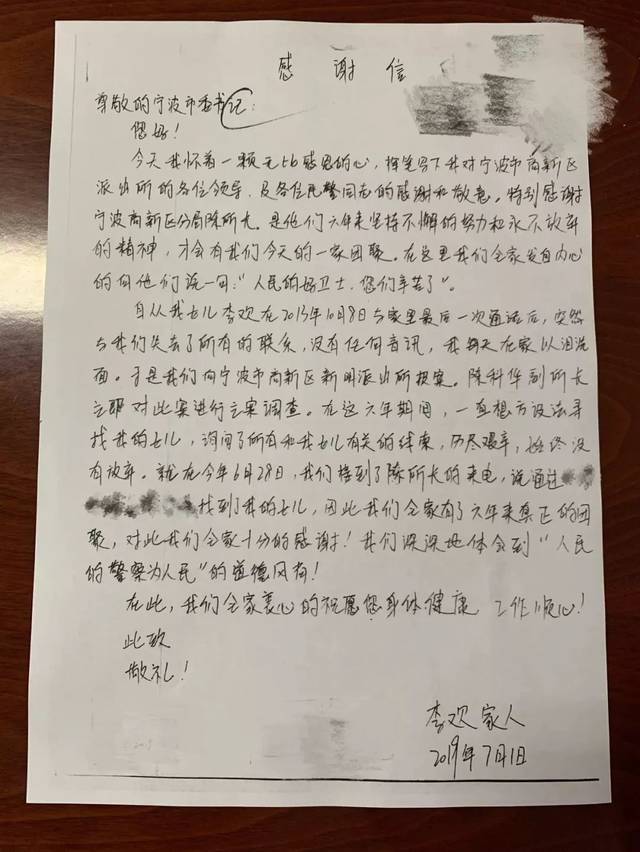 感谢信
尊敬的宁波市委书记：
您好！
今天我怀着一颗无比感恩的心，挥笔写下我对宁波市高新区
派出所的各位领导、及各位民警同志的感谢和敬意。特别感谢
宁波高新区分局陈所长。是他们六年来坚持不懈的努力和永不放弃
的精神，才会有我们今天的一家团聚。在这里我们全家发自内心
的向他们说一句："人民的好卫士，您们辛苦了"。
自从我女儿李欢在2013年10月8日与家里最后一次通话后，突然
与我们失去了所有的联系，没有任何音讯，我每天在家以泪洗
面。于是我们向宁波市高新区新明派出所报案。陈科华副所长
立即对此案进行立案调查。在这六年期间，一直想方设法寻
找我的女儿，询问了所有和我女儿有关的线索，历尽艰辛，始终没
有放弃。就在今年6月28日，我们接到了陈所长的来电，说通过
找到我的女儿，因此我们全家有了六年来真正的团
聚，对此我们全家十分的感谢！我们深深地体会到"人民
的警察为人民"的道德风尚！
在此，我们全家衷心的祝愿您身体健康 工作顺心！
此致
敬礼！
李欢家人
2019年7月1日